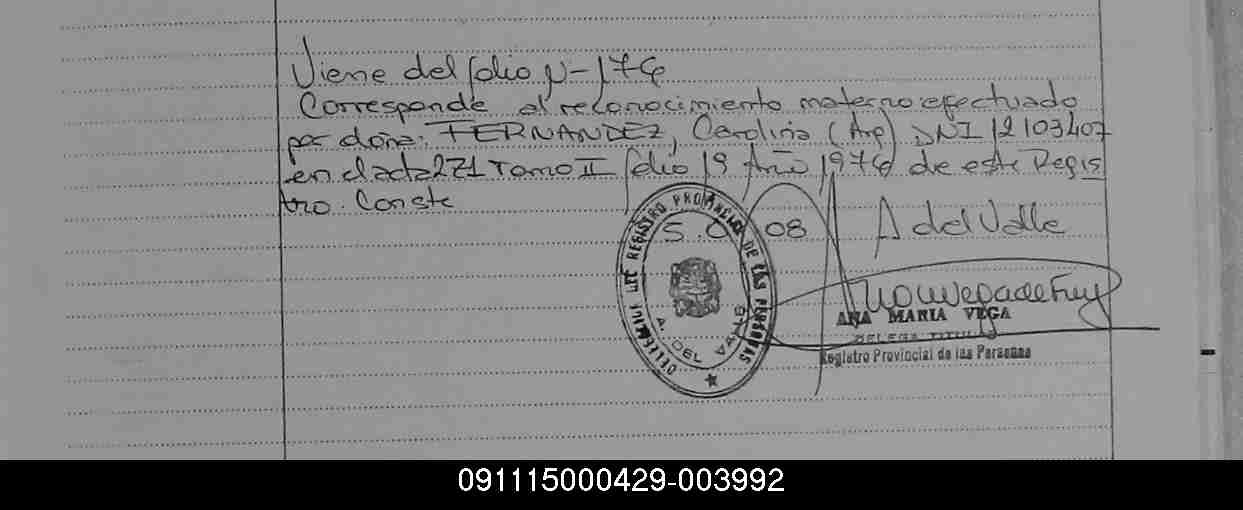 Viene del folio Nº 176
Corresponde al reconocimiento materno efectuado
por doña: FERNANDEZ, Carolina (Arg) DNI 12103407
en el acta 271 Tomo II folio 19 Año 1976 de este Regis
tro. Conste
A del Valle
08
REGISTRO PROVINCIAL DE LAS PERSONAS
A. DEL VALLE
ANA MARIA VEGA
Registro Provincial de las Personas
091115000429-003992